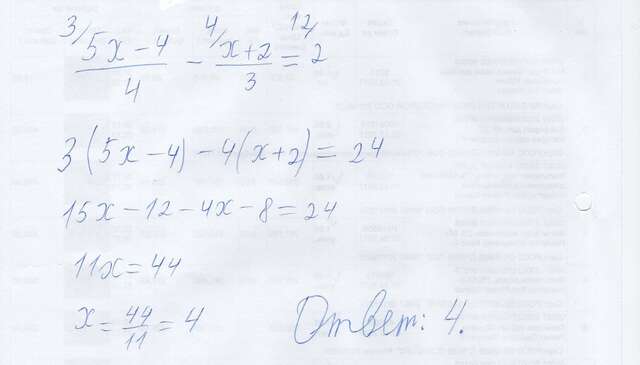 3/ 5x-4 / 4 - 4/ x+2 / 3 = 12/ 2
3(5x-4)-4(x+2)=24
15x-12-4x-8=24
11x=44
x=44/11=4
Ответ: 4.